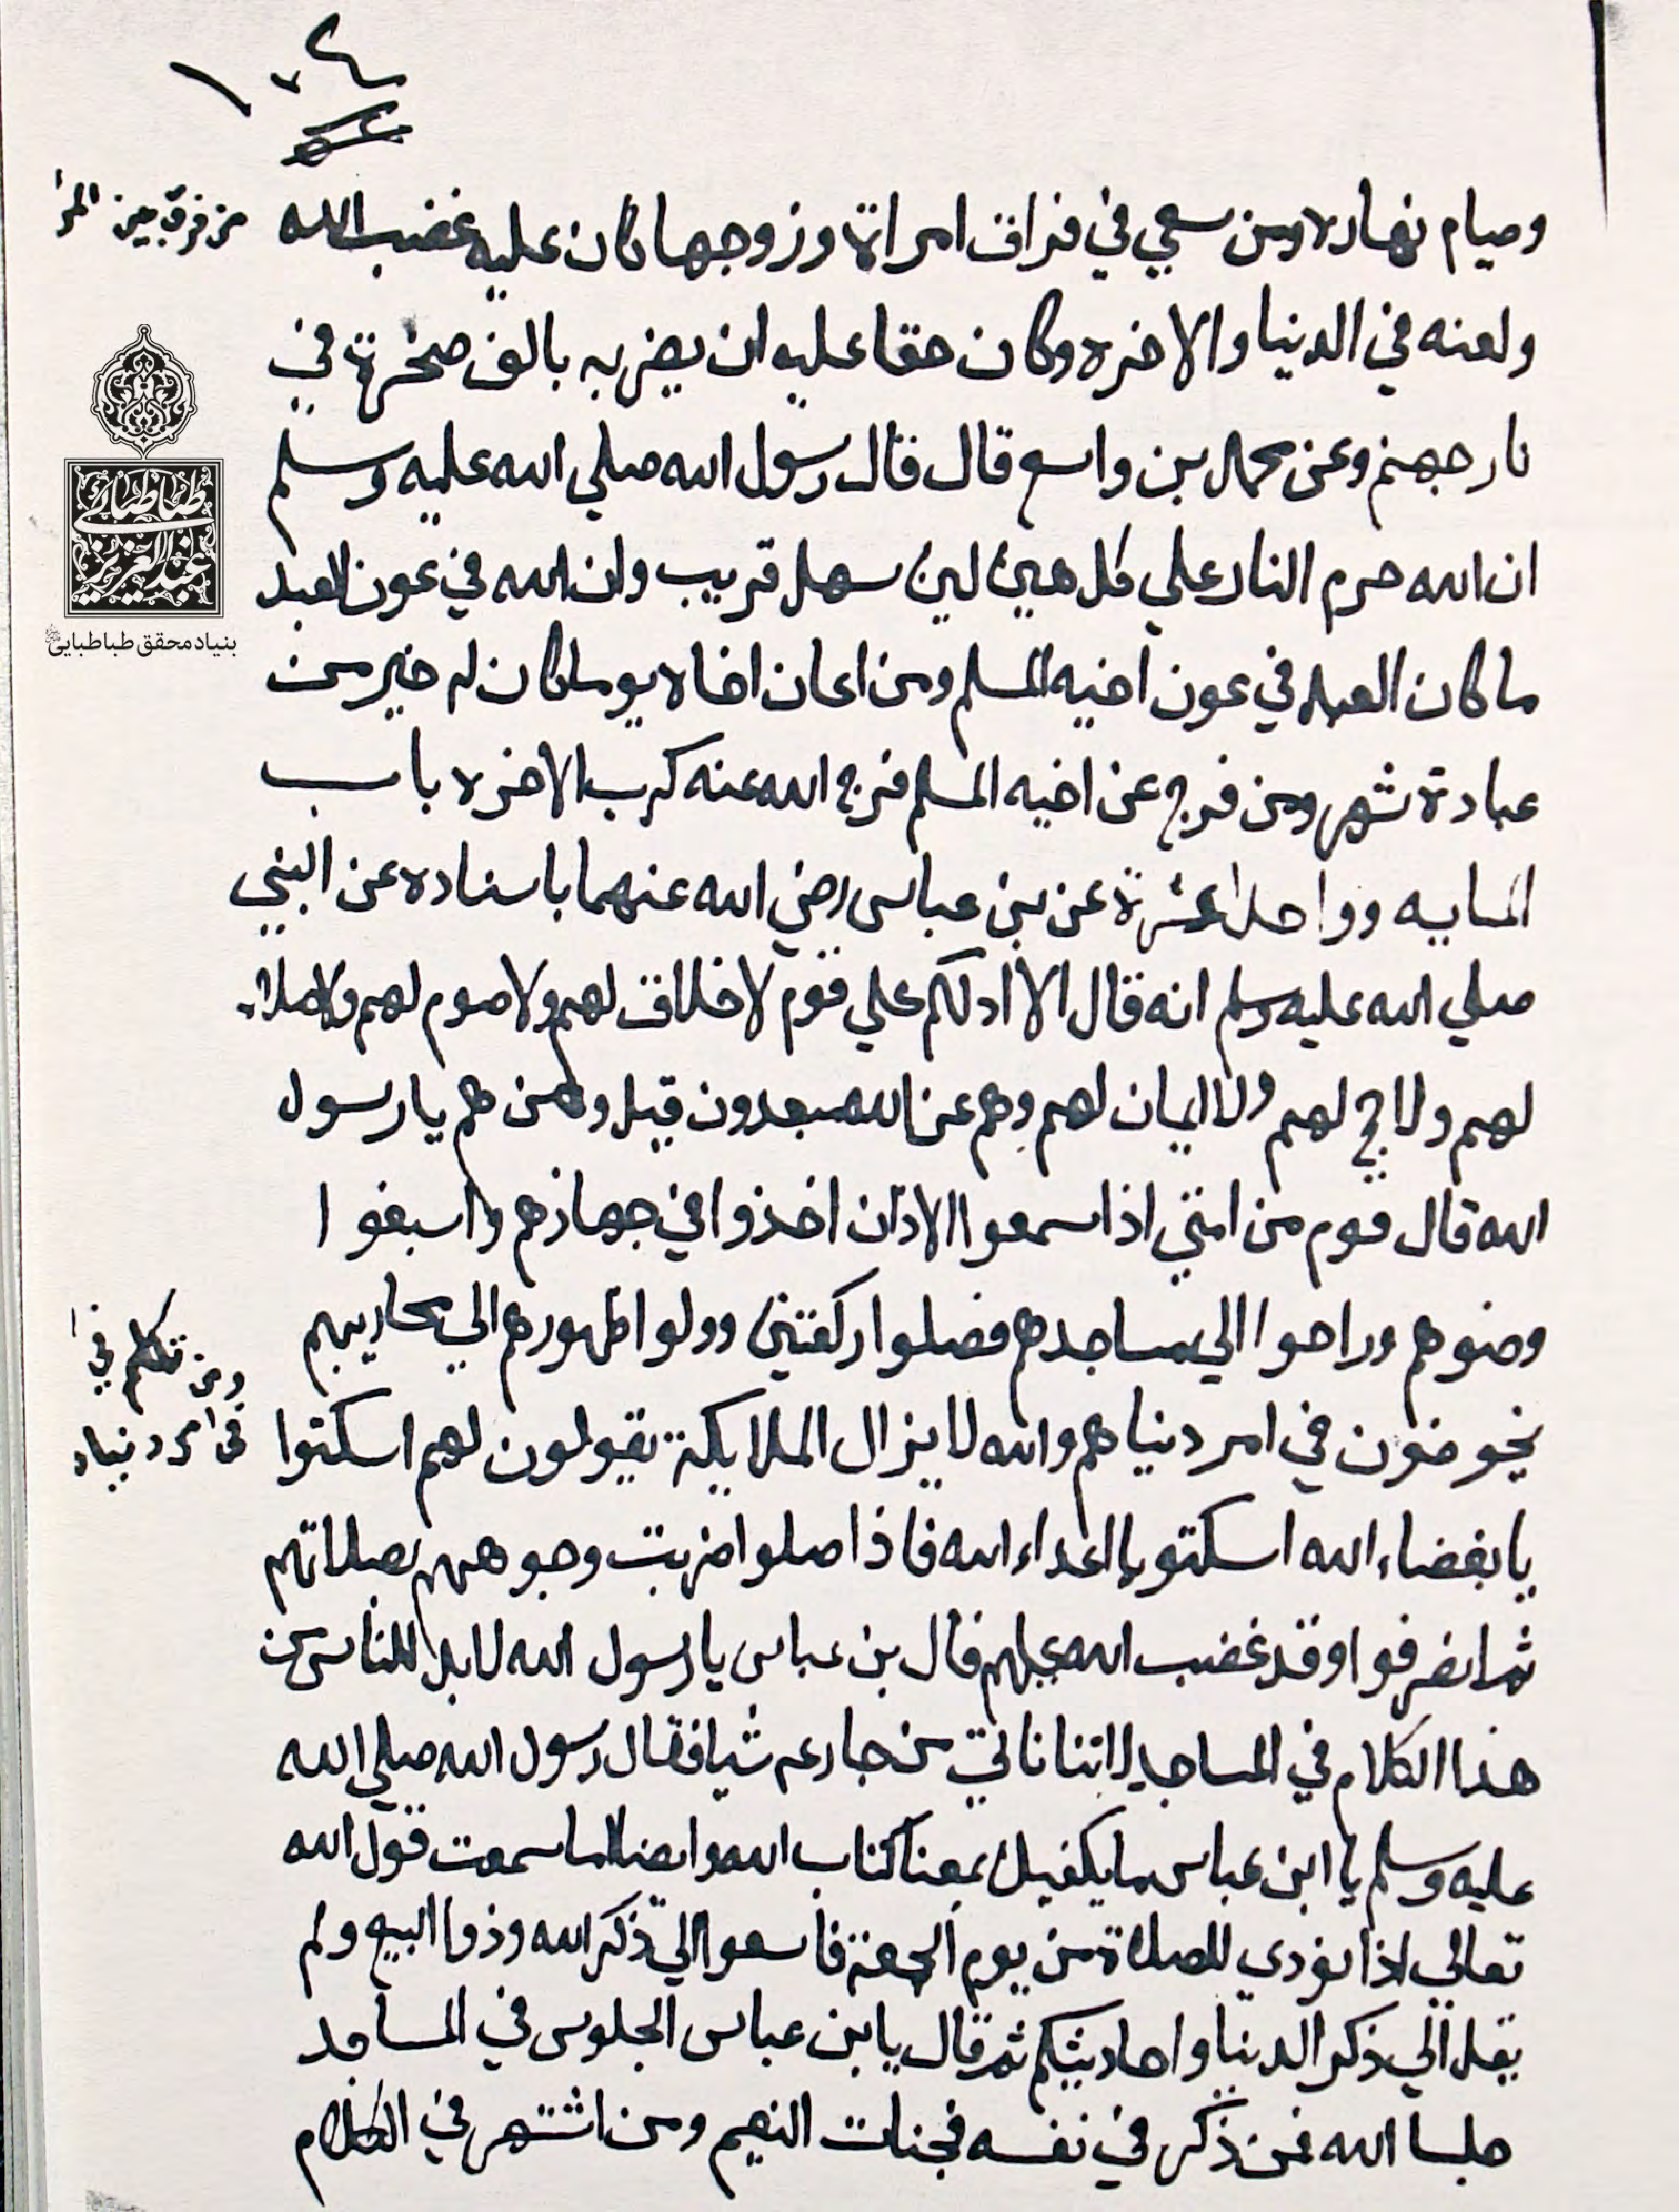 وصيام نهاره ومن سعي في فراق امراة وزوجها كان عليه غضب الله
من فرق بين المرا
ولعنه في الدنيا والاخره وكان حقا عليه ان يضربه بالف صخرة في
نار جهنم وعن محمد بن واسع قال قال رسول الله صلي الله عليه وسلم
ان الله حرم النار علي كل هين لين سهل قريب وان الله في عون العبد
ما كان العبد في عون اخيه المسلم ومن اعان اخاه يوما كان له خير من
عبادة شهر ومن فرج عن اخيه المسلم فرج الله عنه كرب الاخره باب
المايه وواحد عشرة عن بن عباس رضي الله عنهما باسناده عن النبي
صلي الله عليه وسلم انه قال الا ادلكم علي قوم لا خلاق لهم ولا صوم لهم ولا صلاة
لهم ولا حج لهم ولا ايمان لهم وهم عن الله مبعدون قيل ومن هم يا رسول
الله قال قوم من امتي اذا سمعوا الاذان اخذوا في جهازهم واسبغوا
وضوهم وراحوا الي مساجدهم فصلوا ركعتين وولوا ظهورهم الي محاريبهم
ومن تكلم في
يخوضون في امر دنياهم والله لا يزال الملايكة يقولون لهم اسكتوا
في امر دنياه
يا بغضاء الله اسكتو يا اعداء الله فاذا صلوا ضربت وجوههم بصلاتهم
ثم انصرفوا وقد غضب الله عليهم قال بن عباس يا رسول الله لا بد للناس من
هذا الكلام في المساجد لاننا ناتي من شيا فقال رسول الله صلي الله
عليه وسلم يا ابن عباس ما يكفيك كتاب الله وايضا اما سمعت قول الله
تعالي اذا نودي للصلاة من يوم الجمعة فاسعوا الي ذكر الله وذروا البيع ولم
يقل الي ذكر الدنيا واحاديثكم ثم قال يا بن عباس الجلوس في المساجد
جلسا الله فمن ذكر في نفسه فجنات النعيم ومن اشتهر في الكلام
طباطبائي
عبدالعزيز
بنیاد محقق طباطبایی